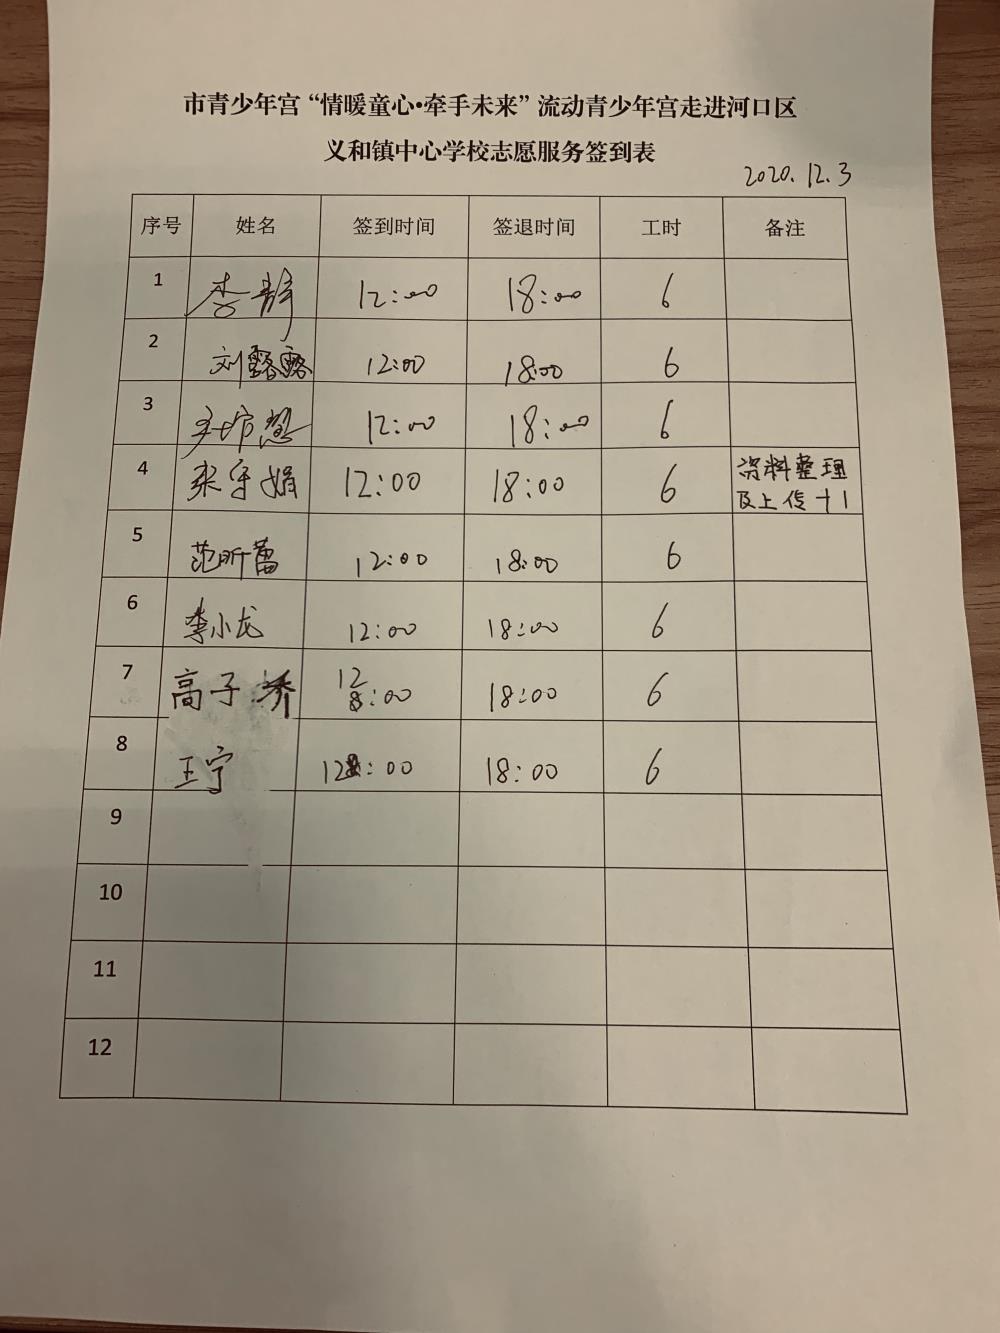 市青少年宫“情暖童心•牵手未来”流动青少年宫走进河口区
义和镇中心学校志愿服务签到表
2020.12.3
序号 姓名 签到时间 签退时间 工时 备注
1 李静 12:00 18:00 6
2 刘露露 12:00 18:00 6
3 12:00 18:00 6
4 张守娟 12:00 18:00 6 资料整理及上传+1
5 范昕蕾 12:00 18:00 6
6 李小龙 12:00 18:00 6
7 高子桥 12:00 18:00 6
8 王宁 12:00 18:00 6
9
10
11
12